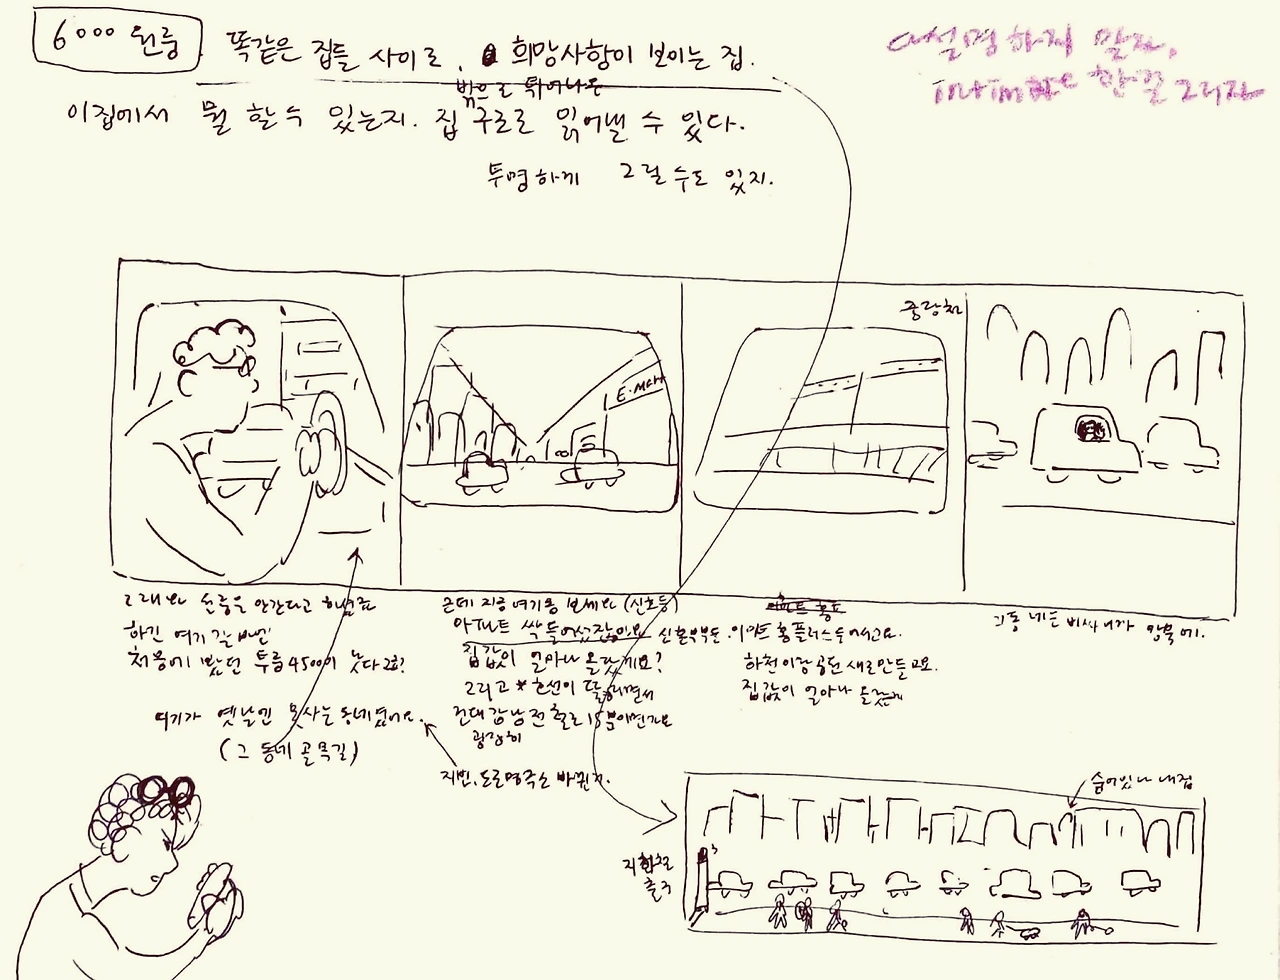 6000 원룸
똑같은 집들 사이로, 희망사항이 보이는 집.
밖으로 튀어나온
이집에서 뭘 할 수 있는지. 집 구조로 읽어낼 수 있다.
투명하게 그릴 수도 있지.
설명하지 말자,
intimate 한 걸 그리자
중랑천
E·MART
그래 원룸을 안간다고 하셨죠
하긴 여기 길
처음에 봤던 투룸 4500이 낫다고?
여기가 옛날엔 못사는 동네였어요.
(그 동네 골목길)
근데 지금 여기좀 보세요 (신호등)
아파트 싹 들어섰잖아요
집값이 얼마나 올랐게요?
그리고 호선이 뚫리면서
건대 강남 전철로 15분이면가요
굉장히
지번, 도로명주소 바뀐거.
신혼부부들. 이마트 홈플러스 들어서고요.
하천이랑 공원 새로 만들고요.
집값이 얼마나 올랐게
그 동네는 비싸니까 땅굴에.
숨어있는 내집
지하철
출구
3